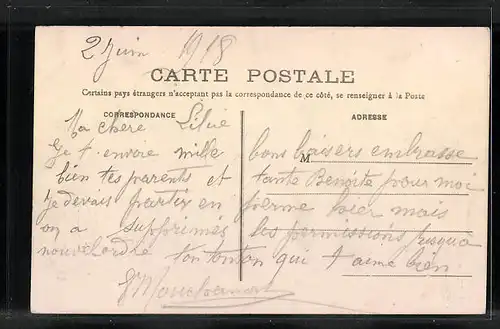 2 Juin 1918
CARTE POSTALE
Certains pays étrangers n'acceptant pas la correspondance de ce côté, se renseigner à la Poste
CORRESPONDANCE
ADRESSE
Ma chère Lilie
Je t'envoie mille bons baisers embrasse
M
bien tes parents et tante Benoite pour moi
je devais partir en perme hier mais
on a supprimés les permissions jusqua
nouvel ordre ton tonton qui t'aime bien